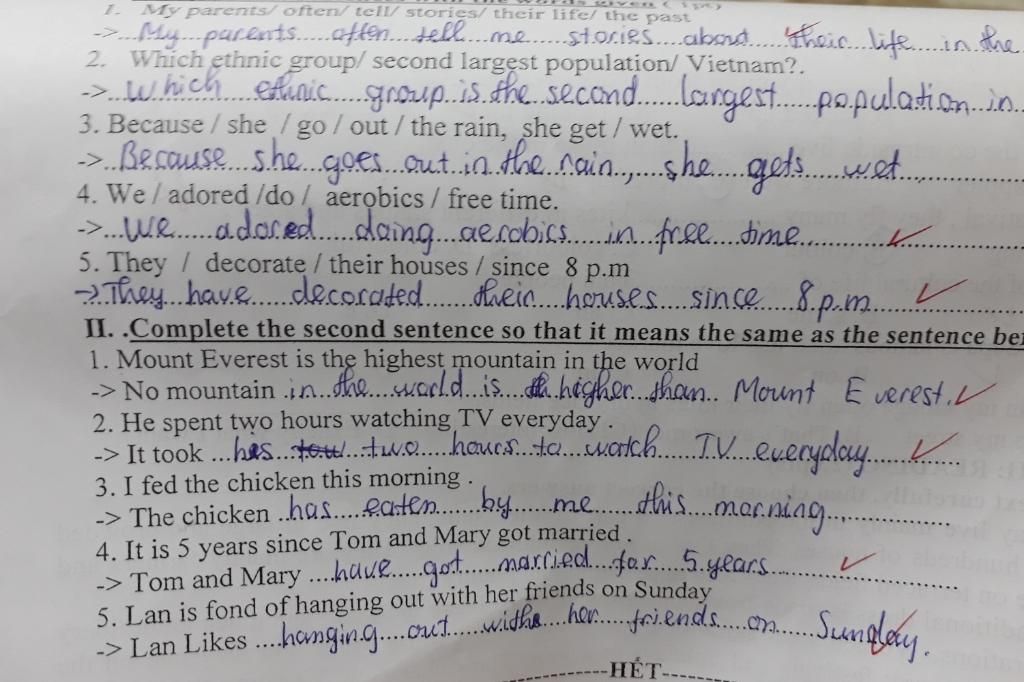 1. My parents/ often/ tell/ stories/ their life/ the past
->...My...parents....often...tell....me.....stories....about.....their...life....in...the
2. Which ethnic group/ second largest population/ Vietnam?.
->...Which...ethnic....group..is..the..second.....largest.....population...in..
3. Because / she / go / out / the rain, she get / wet.
->..Because...she...goes...out..in..the..rain..,....she....gets....wet..............
4. We / adored /do / aerobics / free time.
->...We.....adored.....doing...aerobics.....in...free...time....................
5. They / decorate / their houses / since 8 p.m
->.They...have.....decorated.......their....houses....since....8.p.m.............
II. .Complete the second sentence so that it means the same as the sentence
1. Mount Everest is the highest mountain in the world
-> No mountain .in...the...world..is....higher...than.. Mount Everest.
2. He spent two hours watching TV everyday .
-> It took ...has..two....hours..to...watch.....TV...everyday............
3. I fed the chicken this morning .
-> The chicken ..has....eaten.....by....me....this....morning................
4. It is 5 years since Tom and Mary got married .
-> Tom and Mary ....have.....got.....married...for...5.years........................
5. Lan is fond of hanging out with her friends on Sunday
-> Lan Likes ....hanging....out.....withe...her....friends....on.....Sunday.
-----------HẾT-------